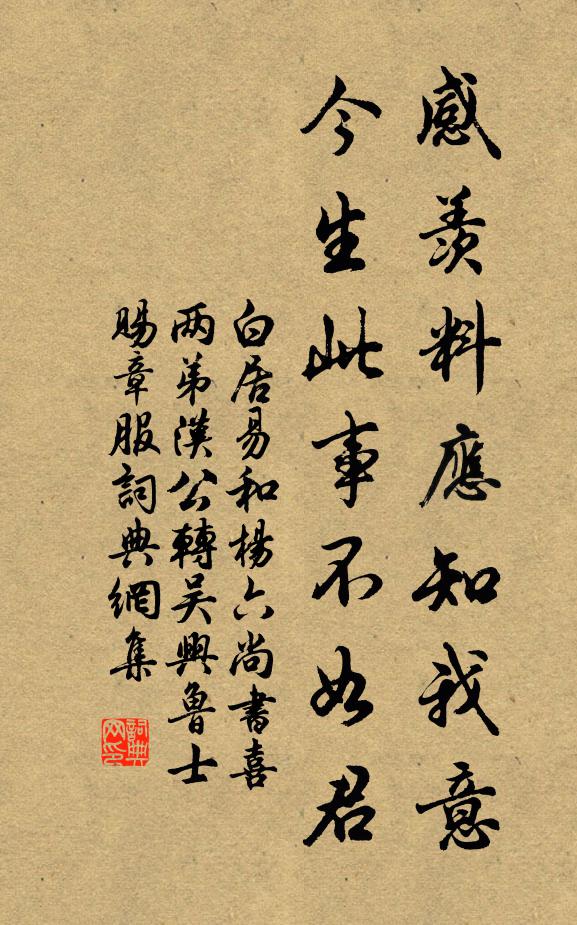 感羨料應知我意
今生此事不如君
白居易和楊六尚書喜
两弟漢公轉吴興魯士
賜章服詞典網集
詞典
网印